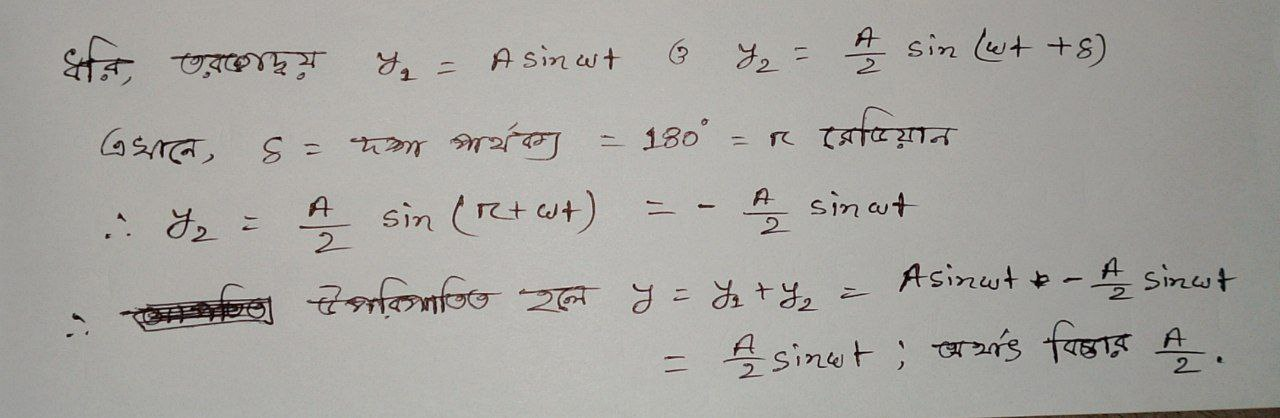 ধরি, তরঙ্গদ্বয় y₁ = A sin ωt ও y₂ = A/2 sin (ωt + δ)
এখানে, δ = দশা পার্থক্য = 180° = π রেডিয়ান
∴ y₂ = A/2 sin (π + ωt) = - A/2 sin ωt
∴ উপরিপাতিত হলে y = y₁ + y₂ = A sin ωt - A/2 sin ωt
= A/2 sin ωt ; অর্থাৎ বিস্তার A/2 .